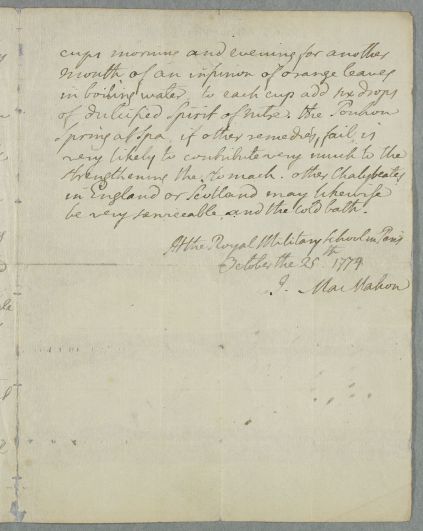 cups morning and evening for another
month of an infusion of orange leaves
in boiling water, to each cup add six drops
of dulcified Spirit of nitre. the Pouhon
spring at Spa, if other remedies, fail, is
very likely to contribute very much to the
strengthening the stomach. other Chalybeates
in England or Scotland may likewise
be very serviceable, and the cold bath.
At the Royal Military School in Paris
October the 25th 1779
J. MacMahon